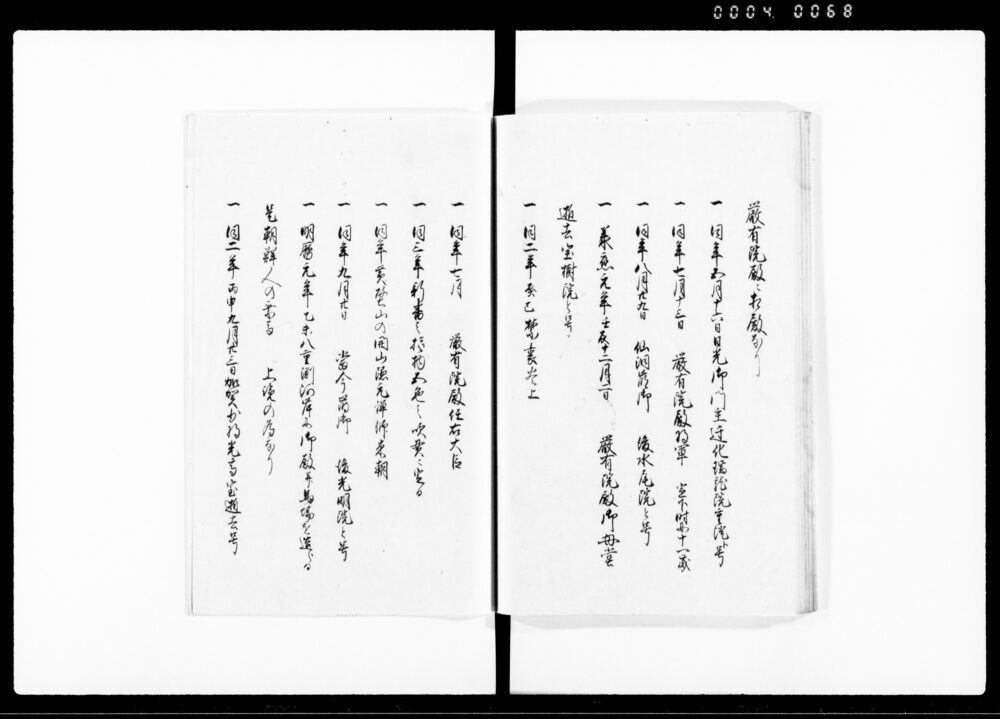 0004 0068
厳有院殿ニ相殿なり
一 同年五月十六日日光御門主遷化 院 号
一 同年七月十三日 厳有院殿将軍 宣下時ニ十一歳
一 同年八月廿九日 仙洞崩御 後水尾院と号
一 承応元年壬辰十二月二日 厳有院殿御母堂
逝去宝樹院と号
一 同二年癸巳禁裏炎上
一 同年七月 厳有院殿任右大臣
一 同三年新番之指物五色之吹貫ニ定る
一 同年黄檗山の開山隠元禅師来朝
一 同年九月廿日 当今崩御 後光明院と号
一 明暦元年乙未八重洲河岸ニ御殿并馬場を造らる
是朝鮮人の 馬 上覧の為なり
一 同二年丙申九月廿三日加賀 光高室逝去号